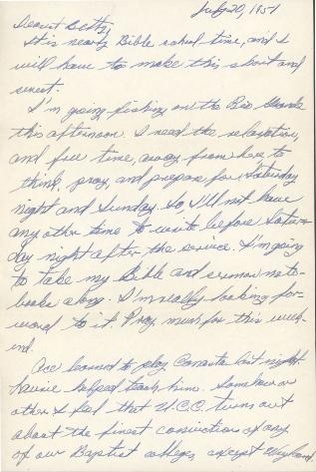 July 20, 1951
Dearest Betty,
It is nearly Bible school time, and I
will have to make this short and
sweet.
I'm going fishing on the Rio Grande
this afternoon. I need the relaxation,
and free time, away from here to
think, pray, and prepare for Saturday
night and Sunday. So, I'll not have
any other time to write before Satur-
day night after the service. I'm going
to take my Bible and sermon note-
books along. I'm really looking for-
ward to it. Pray much for this week-
end.
Ace learned to play Canasta last night.
helped teach him. Somehow or
other I feel that U.C.C. turns out
about the finest conviction of any
of our Baptist colleges except Wayland